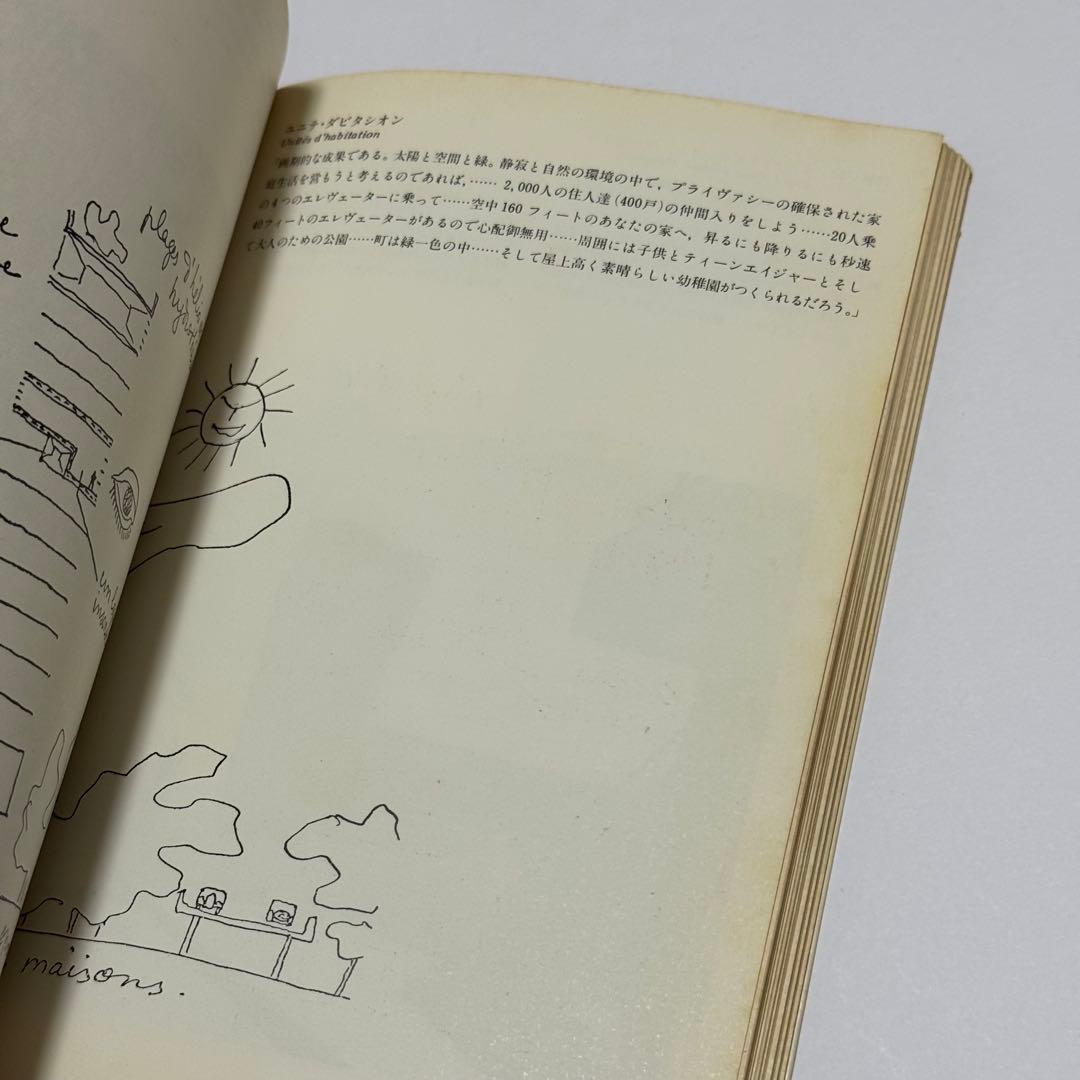 ユニテ・ダビタシオン
Unités d'habitation
「画期的な成果である。太陽と空間と緑。静寂と自然の環境の中で，プライヴァシーの確保された家
庭生活を営もうと考えるのであれば，…… 2,000人の住人達（400戸）の仲間入りをしよう……20人乗
の4つのエレヴェーターに乗って……空中160 フィートのあなたの家へ，昇るにも降りるにも秒速
40フィートのエレヴェーターがあるので心配御無用……周囲には子供とティーンエイジャーとそし
て大人のための公園……町は緑一色の中……そして屋上高く素晴らしい幼稚園がつくられるだろう。」
maisons.